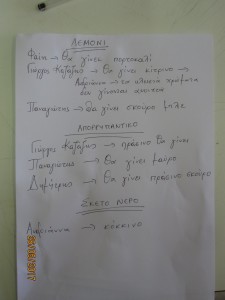 ΛΕΜΟΝΙ
Φαίη → Θα γίνει πορτοκαλί
Γιώργος Καζάζης → Θα γίνει κίτρινο →
→ τα υπόλοιπα χρώματα
θα γίνονται
Παναγιώτης → Θα γίνει σκούρο μπλε
ΑΠΟΡΡΥΠΑΝΤΙΚΟ
Γιώργος Καζάζης → πράσινο θα γίνει
Παναγιώτης → Θα γίνει μαύρο
Δημήτρης → Θα γίνει πράσινο σκούρο
ΣΚΕΤΟ ΝΕΡΟ
→ κόκκινο